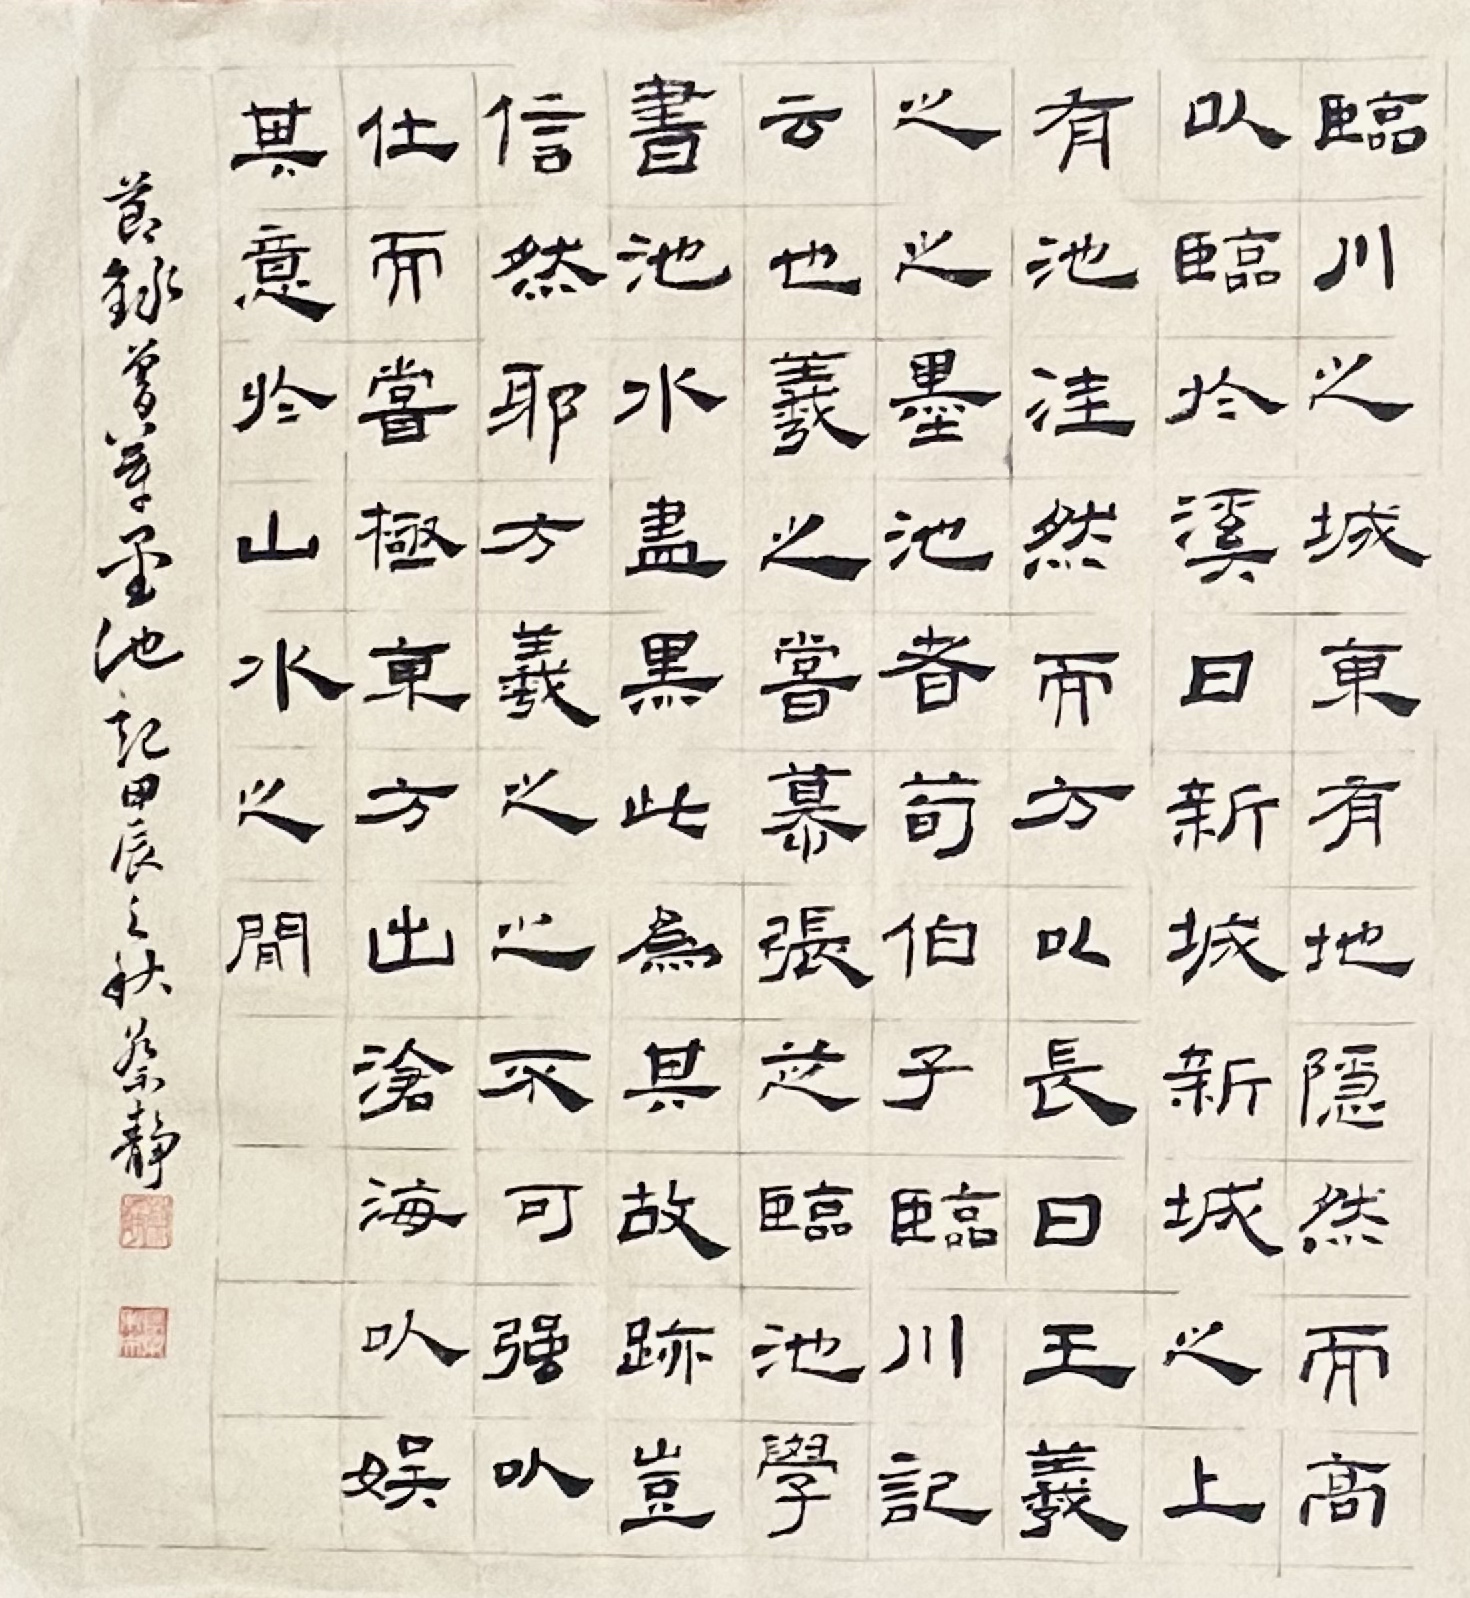 臨川之城東有地隱然而高
以臨於溪曰新城新城之上
有池洼然而方以長曰王羲
之之墨池者荀伯子臨川記
云也羲之嘗慕張芝臨池學
書池水盡黑此為其故跡豈
信然耶方羲之之不可強以
仕而嘗極東方出滄海以娛
其意於山水之間
節錄曾鞏墨池記甲辰之秋蔡靜